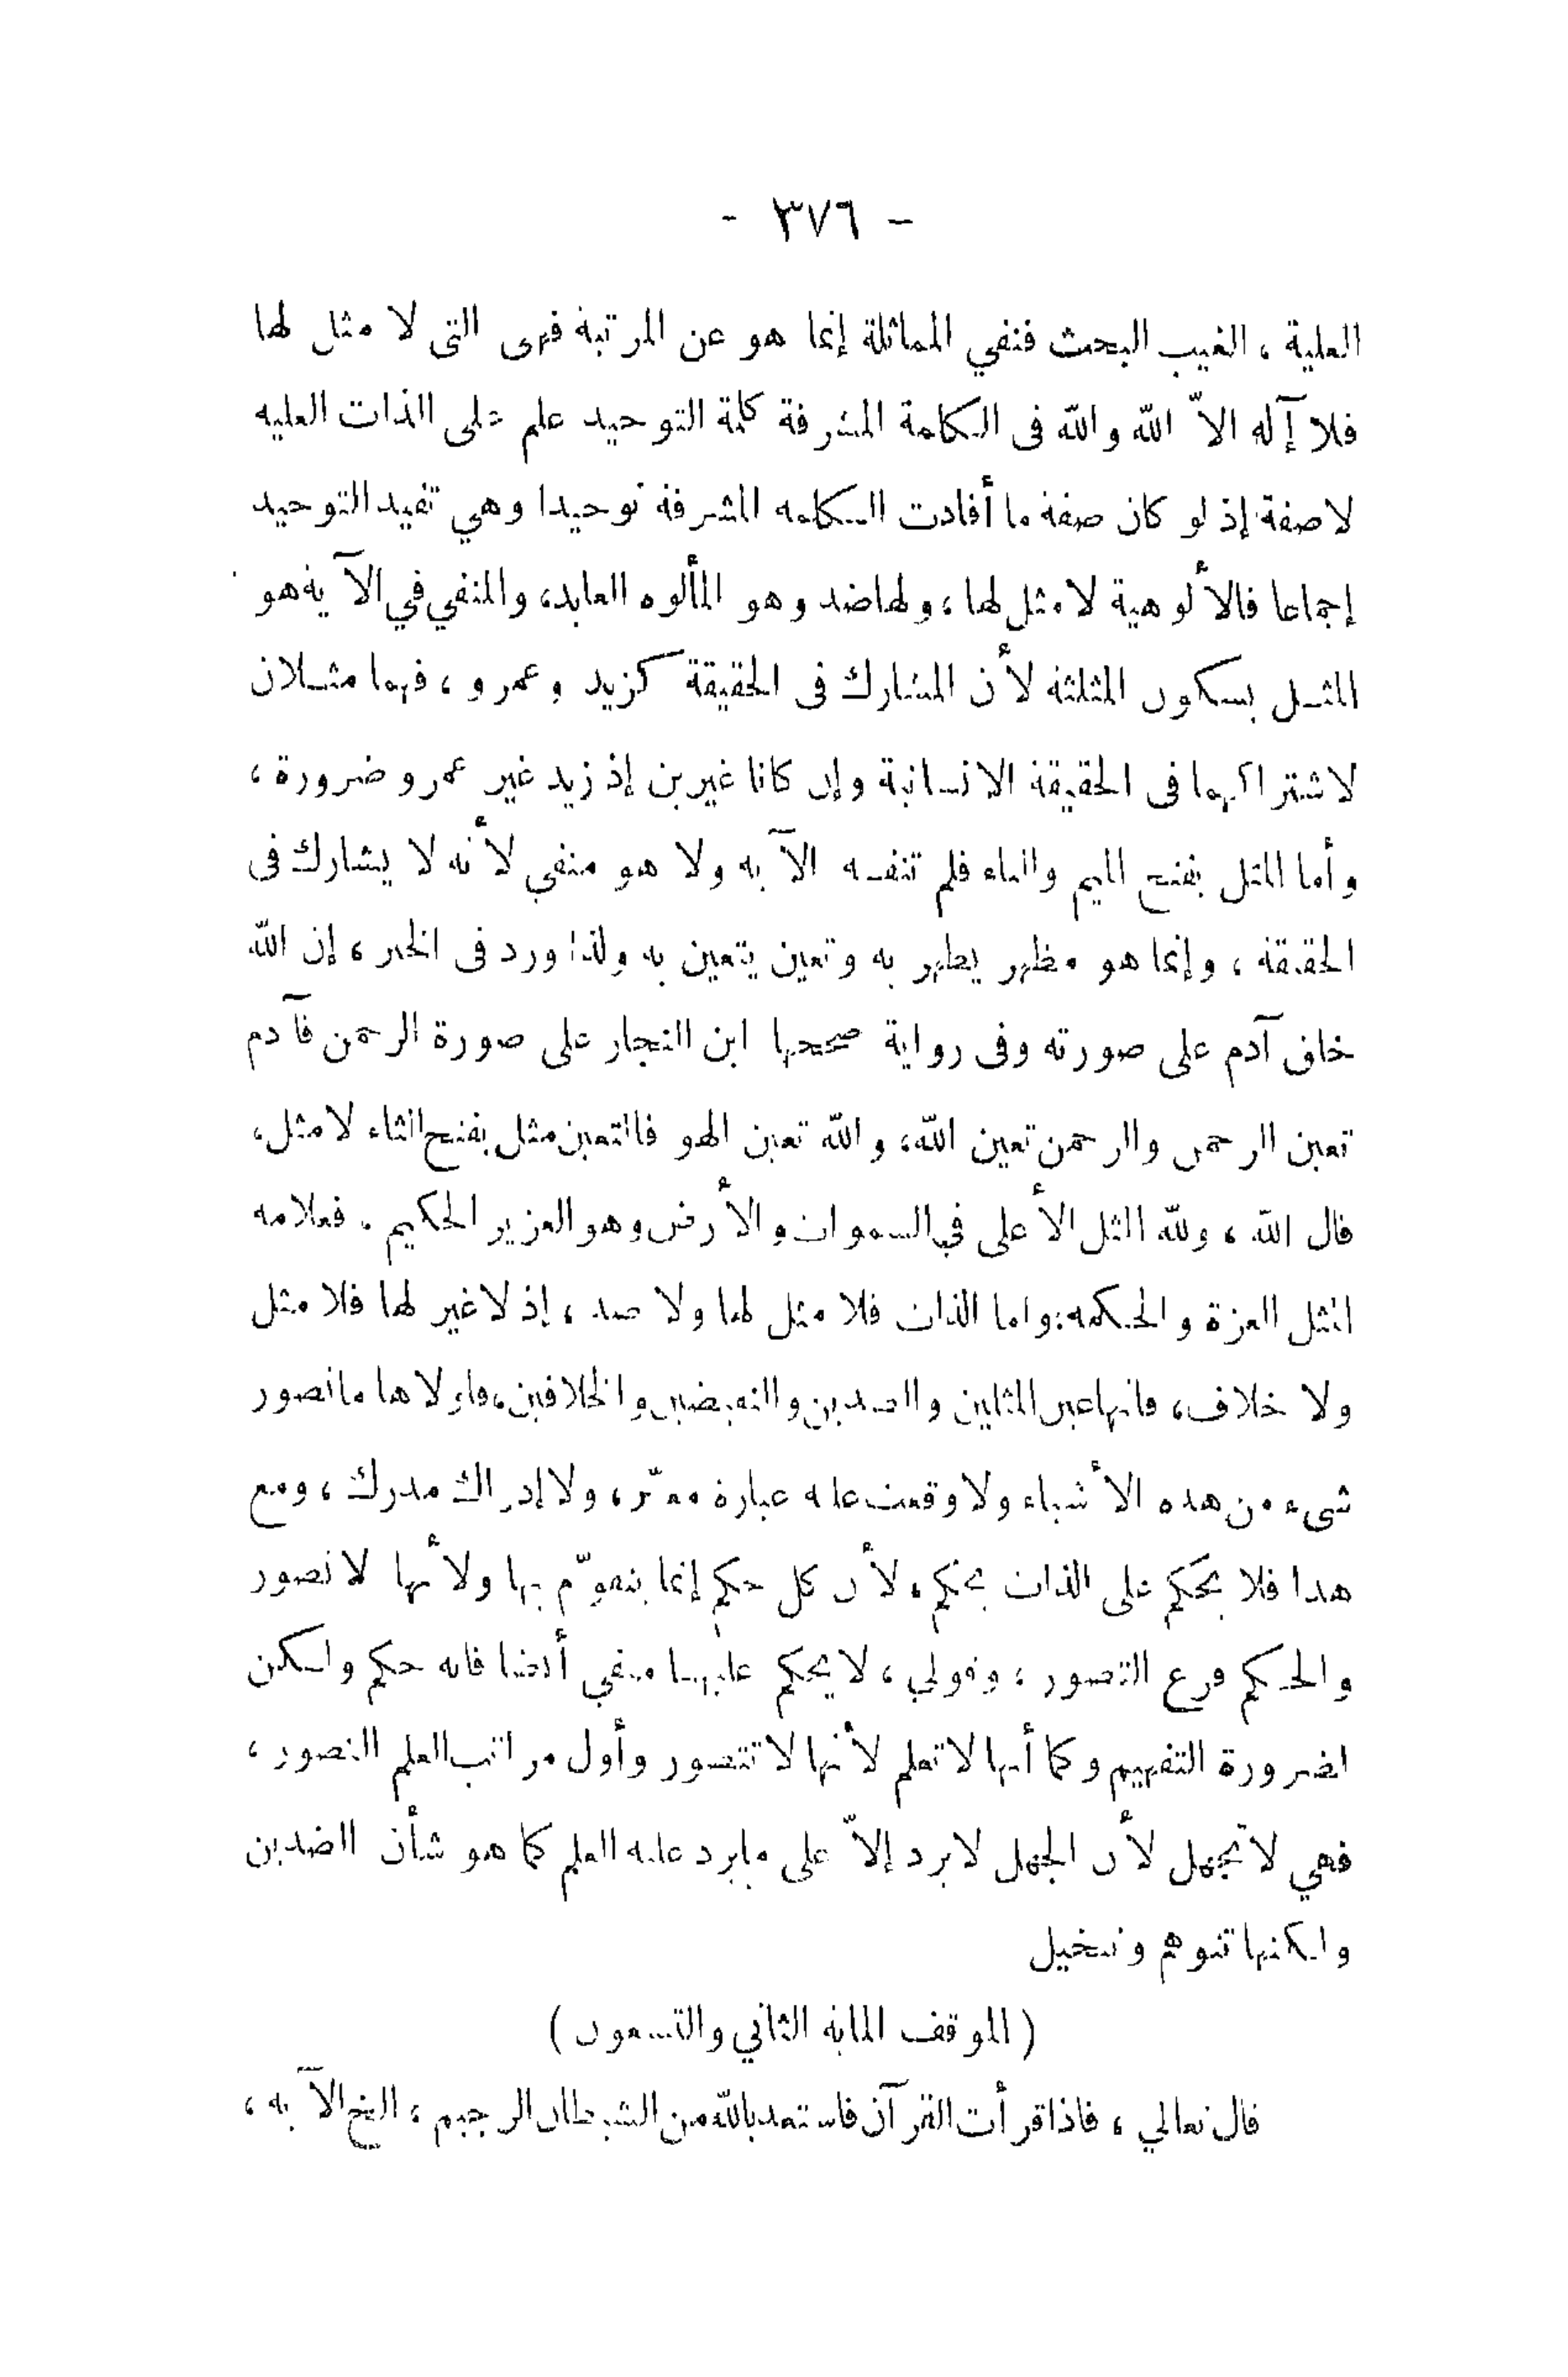 - ٣٧٦ -
العلية ، الغيب البحث فنفي المماثلة إنما هو عن المرتبة فهى التى لا مثل لها
فلا إله الاّ الله والله فى الكلمة المشرفة كلمة التوحيد علم على الذات العليه
لا صفة إذ لو كان صفة ما أفادت الكلمه المشرفة توحيدا وهي تفيد التوحيد
إجماعا فالألوهية لا مثل لها ، ولها ضد وهو المألوه العابد، والمنفي في الآية هو
المثل بسكون المثلثة لأن المشارك فى الحقيقة كزيد وعمرو ، فهما مثلان
لاشتراكهما فى الحقيقة الانسانية وإن كانا غيرين إذ زيد غير عمرو ضرورة ،
وأما المثل بفتح الميم والثاء فلم تنفه الآية ولا هو منفي لأنه لا يشارك فى
الحقيقة ، وإنما هو مظهر يظهر به وتعين يتعين به ولذا ورد فى الخبر ، إن الله
خلق آدم على صورته وفى رواية صححها ابن النجار على صورة الرحمن فآدم
تعين الرحمن والرحمن تعين الله، والله تعين الهو فالتعين مثل بفتح الثاء لا مثل،
قال الله ، ولله المثل الأعلى في السموات والأرض وهو العزيز الحكيم . فعلامه
المثل العزة والحكمه: واما الذات فلا مثل لها ولا ضد ، إذ لا غير لها فلا مثل
ولا خلاف، فانها عين المثلين والضدين والنقيضين والخلافين، فلولاها ما تصور
شىء من هذه الأشياء ولا وقعت عليه عبارة معبّر ، ولا إدراك مدرك ، ومع
هذا فلا يحكم على الذات بحكم، لأن كل حكم إنما يتقوّم بها ولأنها لا تصور
والحكم فرع التصور ، وقولي ، لا يحكم عليها منفي أيضا فانه حكم ولكن
لضرورة التفهيم وكما أنها لا تعلم لأنها لا تتصور وأول مراتب العلم التصور ،
فهي لا تجهل لأن الجهل لا يرد إلاّ على ما يرد عليه العلم كما هو شأن الضدين
ولكنها تتوهم وتتخيل
( الموقف المايه الثاني والتسعون )
قال تعالي ، فاذا قرأت القرآن فاستعذ بالله من الشيطان الرجيم ، الخ الآيه ،